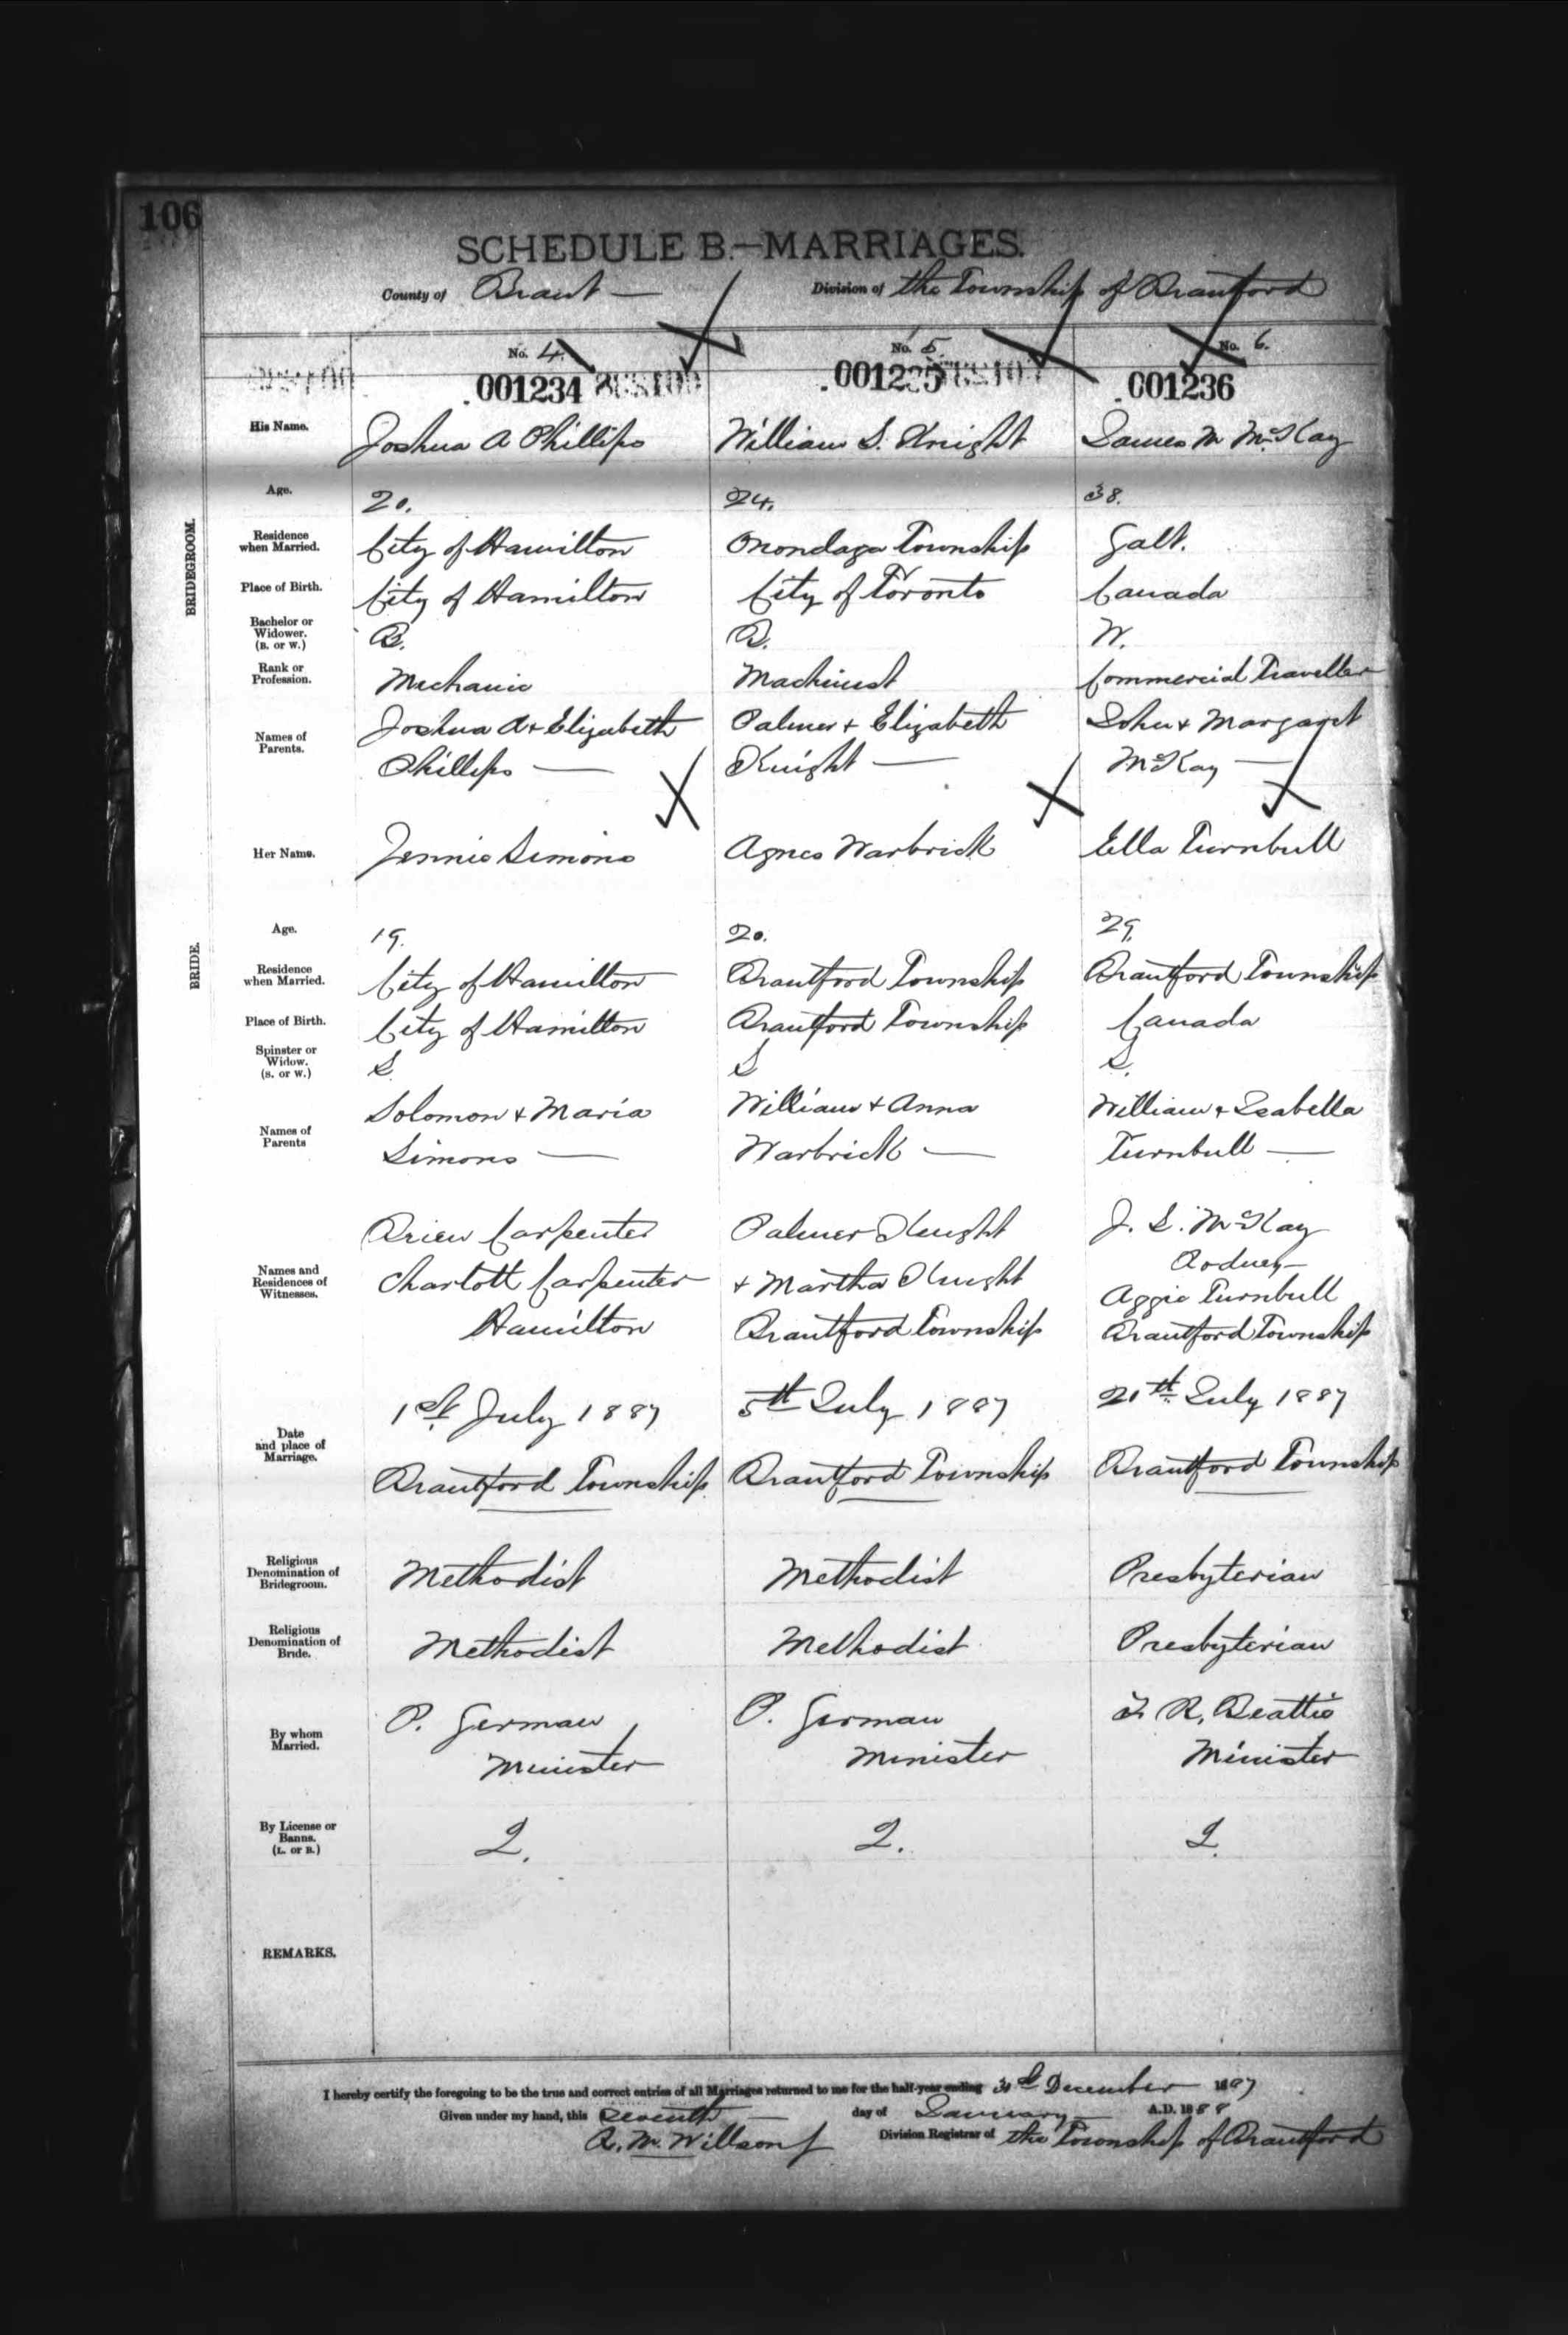 106
SCHEDULE B.—MARRIAGES.
County of Brant — Division of the Township of Brantford
No. 4. No. 5. No. 6.
001234 001235 001236
His Name. Joshua A Phillips William S. Knight James M McKay
BRIDEGROOM.
Age. 20. 24. 38.
Residence when Married. City of Hamilton Onondaga Township Galt.
Place of Birth. City of Hamilton City of Toronto Canada
Bachelor or Widower. (B. or W.) B. B. W.
Rank or Profession. Mechanic Machinist Commercial Traveller
Names of Parents. Joshua A + Elizabeth Palmer + Elizabeth John + Margaret
Phillips — Knight — McKay —
Her Name. Jennie Simons Agnes Warbrick Ella Turnbull
BRIDE.
Age. 19. 20. 29.
Residence when Married. City of Hamilton Brantford Township Brantford Township
Place of Birth. City of Hamilton Brantford Township Canada
Spinster or Widow. (S. or W.) S S S.
Names of Parents Solomon + Maria William + Anna William + Isabella
Simons — Warbrick — Turnbull —
Names and Residences of Witnesses. Carpenter Palmer Knight J. S. McKay
Rodney
Charlott Carpenter + Martha Knight Aggie Turnbull
Hamilton Brantford Township Brantford Township
Date and place of Marriage. 1st July 1887 5th July 1887 July 1887
Brantford Township Brantford Township Brantford Township
Religious Denomination of Bridegroom. Methodist Methodist Presbyterian
Religious Denomination of Bride. Methodist Methodist Presbyterian
By whom Married. P. German P. German F. R. Beattie
Minister Minister Minister
By License or Banns. (L. or B.) L. L. L.
REMARKS.
I hereby certify the foregoing to be the true and correct entries of all Marriages returned to me for the half-year ending 31st December 1887
Given under my hand, this Seventh — day of January — A.D. 1888
Willson Division Registrar of the Township of Brantford